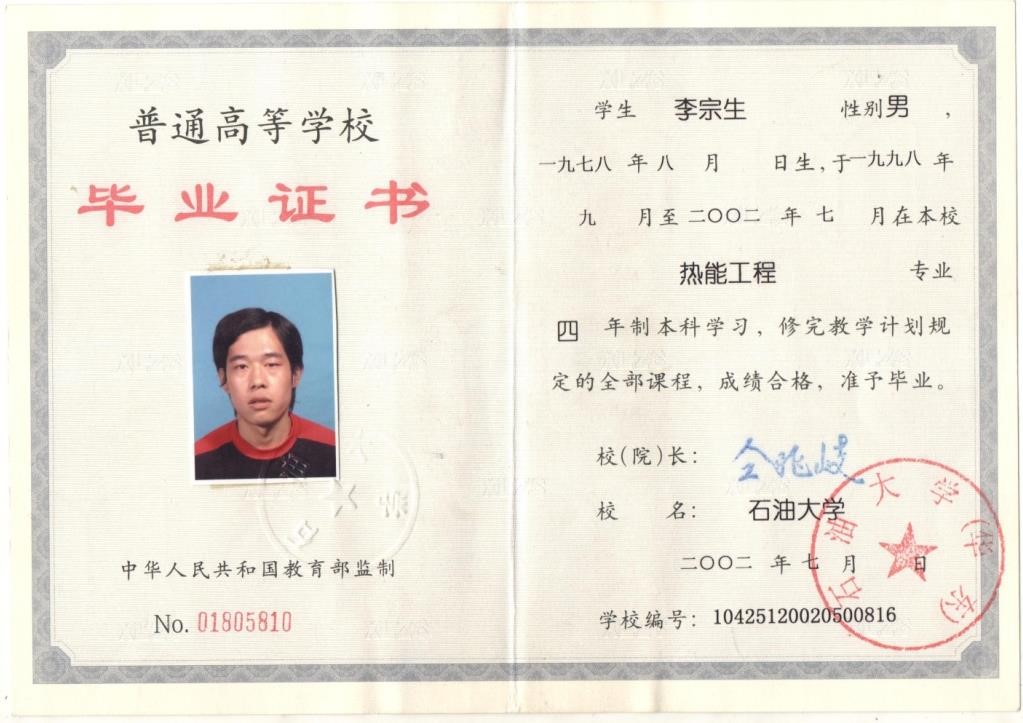 普通高等学校
毕业证书
中华人民共和国教育部监制
No. 01805810
学生 李宗生 性别男，
一九七八 年 八 月 日生，于一九九八 年
九 月至 二〇〇二 年 七 月在本校
热能工程 专业
四 年制本科学习，修完教学计划规
定的全部课程，成绩合格，准予毕业。
校（院）长： 仝兆岐
校 名： 石油大学
二〇〇二 年 七 月 日
学校编号： 10425120020500816
石油大学（华东）